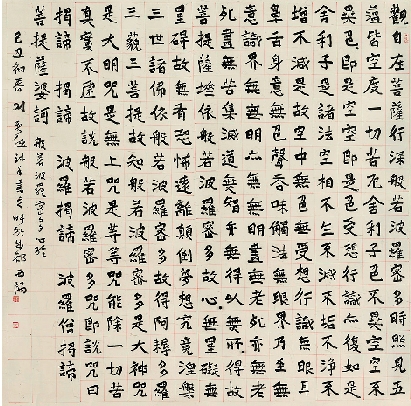 觀自在菩薩行深般若波羅蜜多時照見五
蘊皆空度一切苦厄舍利子色不異空空不
異色色即是空空即是色受想行識亦復如是
舍利子是諸法空相不生不滅不垢不淨不
增不減是故空中無色無受想行識無眼耳
鼻舌身意無色聲香味觸法無眼界乃至無
意識界無無明亦無無明盡乃至無老死亦無老
死盡無苦集滅道無智亦無得以無所得故
菩提薩埵依般若波羅蜜多故心無罣礙無
罣礙故無有恐怖遠離顛倒夢想究竟涅槃
三世諸佛依般若波羅蜜多故得阿耨多羅
三藐三菩提故知般若波羅蜜多是大神咒
是大明咒是無上咒是無等等咒能除一切苦
真實不虛故說般若波羅蜜多咒即說咒曰
揭諦揭諦 波羅揭諦 波羅僧揭諦
菩提薩婆訶 般若波羅蜜多心經
己丑初春